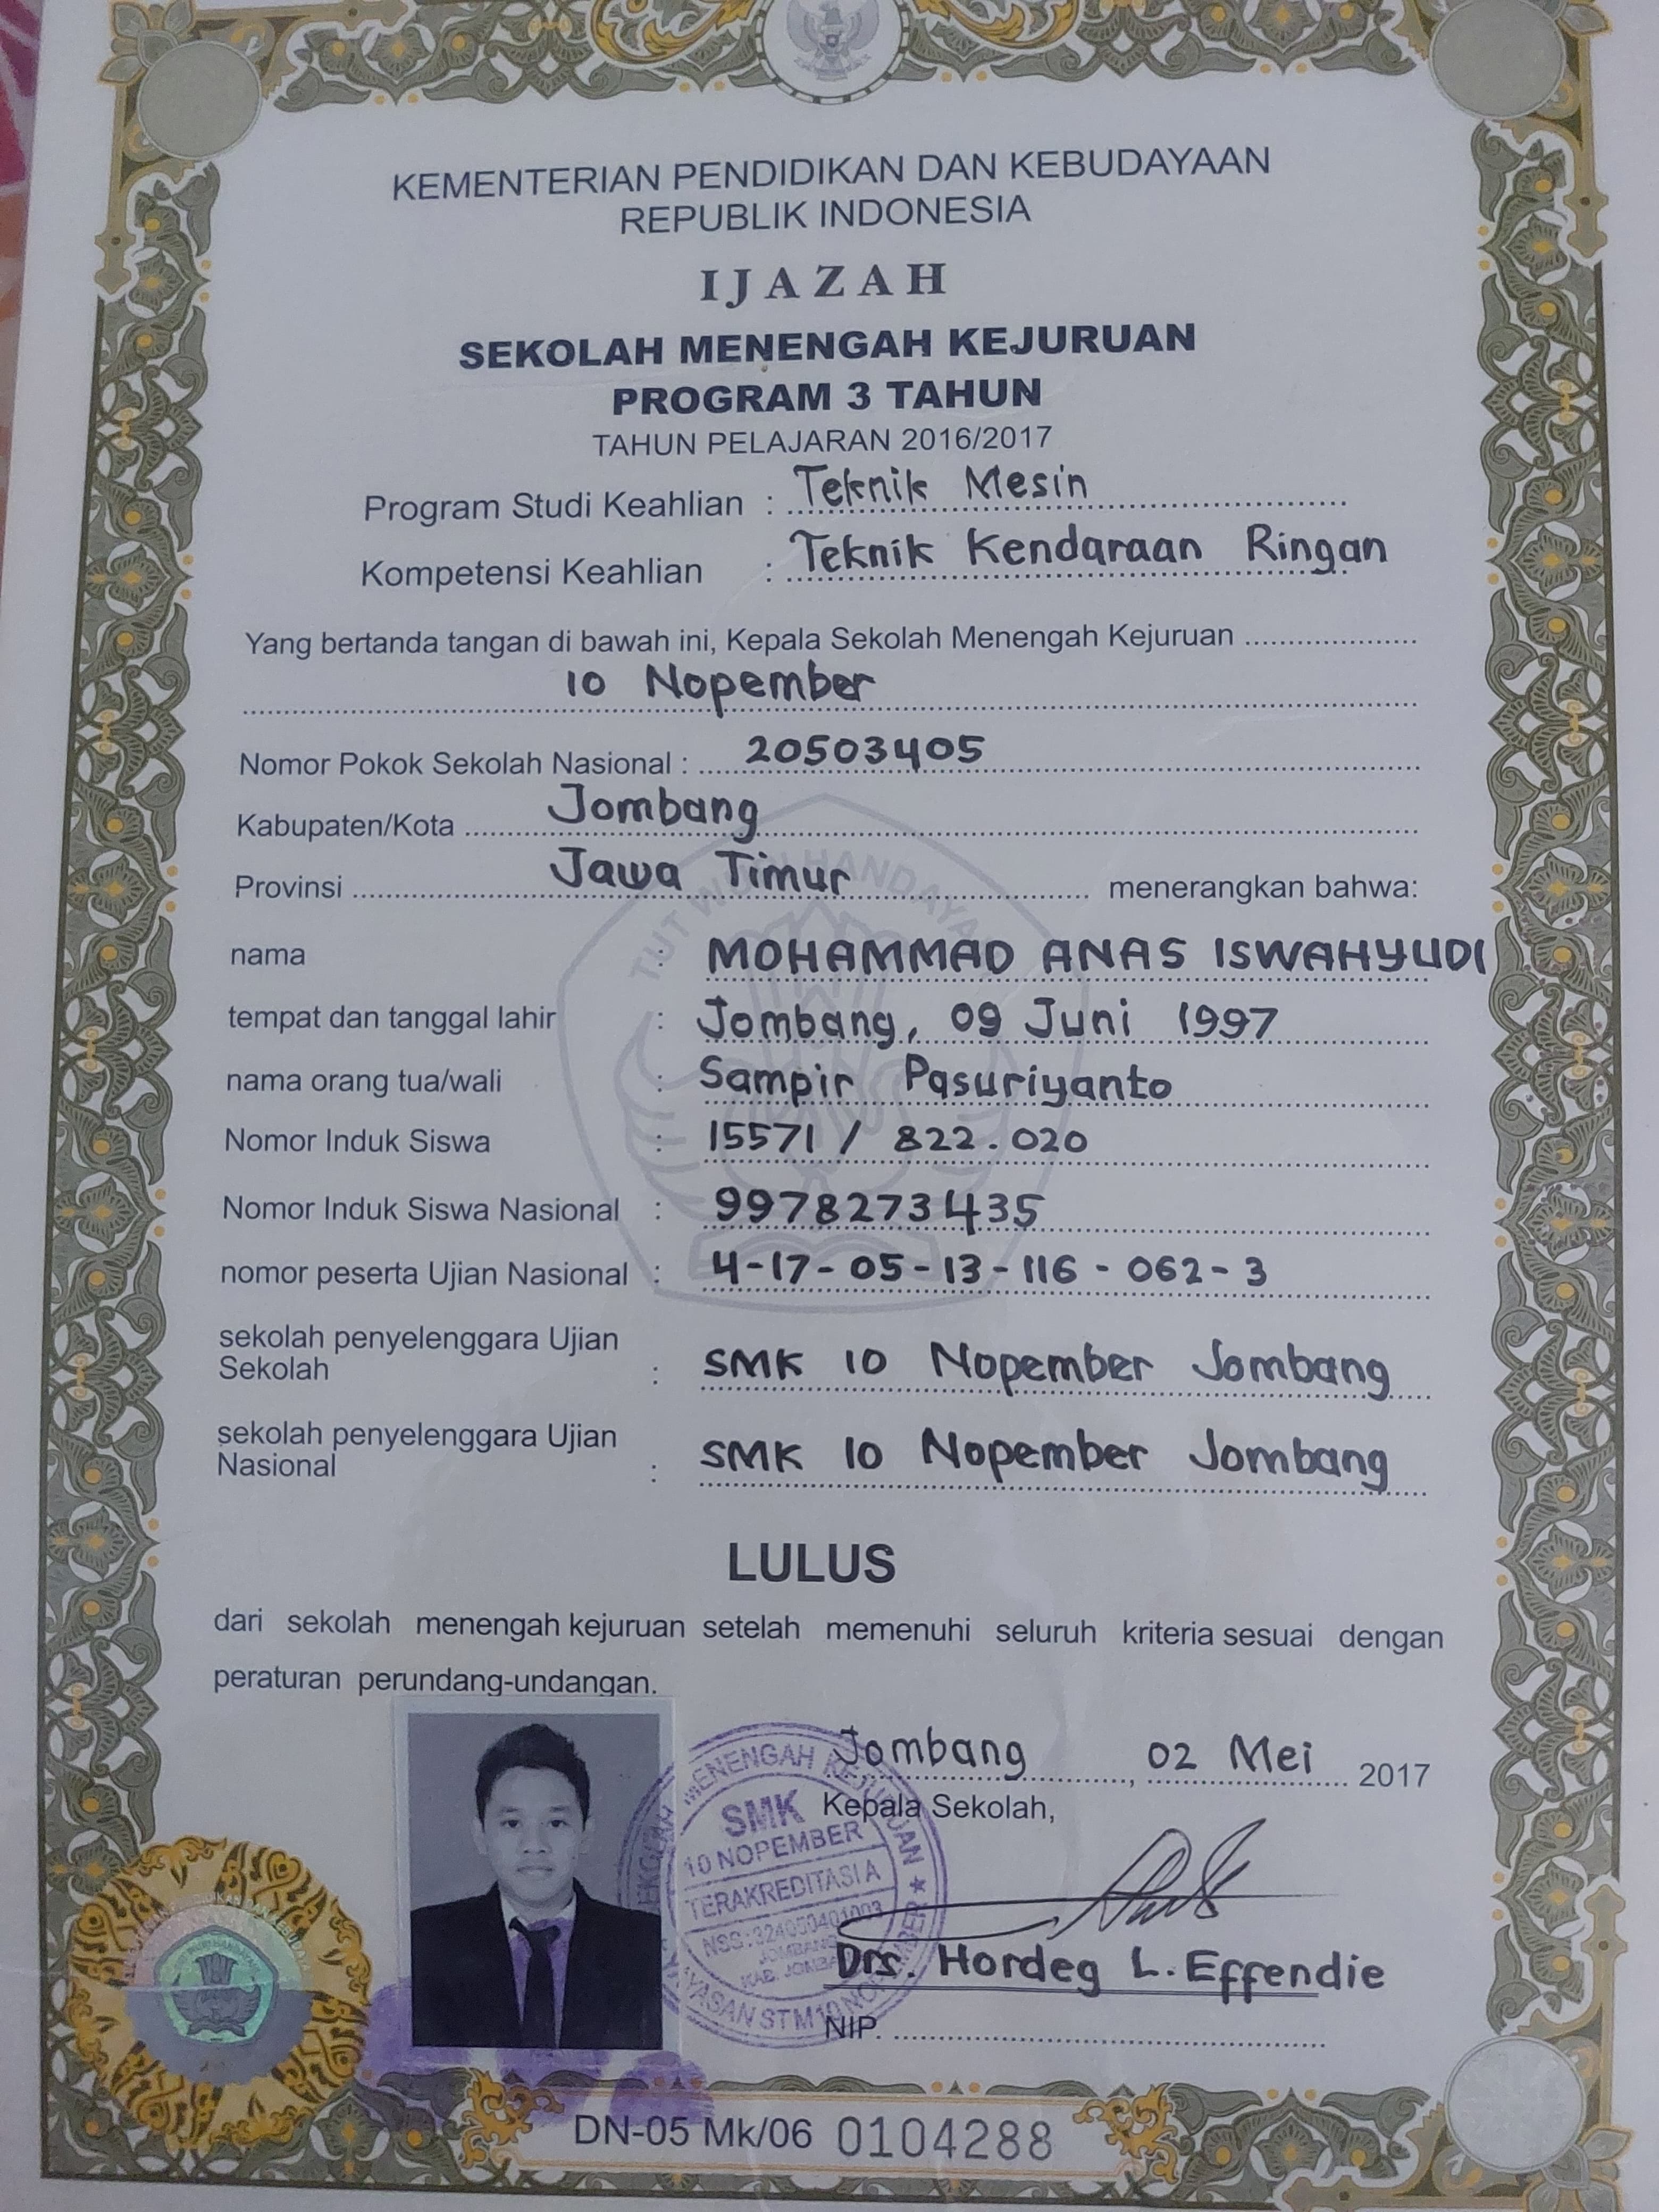 KEMENTERIAN PENDIDIKAN DAN KEBUDAYAAN
REPUBLIK INDONESIA
IJAZAH
SEKOLAH MENENGAH KEJURUAN
PROGRAM 3 TAHUN
TAHUN PELAJARAN 2016/2017
Program Studi Keahlian : Teknik Mesin
Kompetensi Keahlian : Teknik Kendaraan Ringan
Yang bertanda tangan di bawah ini, Kepala Sekolah Menengah Kejuruan
10 Nopember
Nomor Pokok Sekolah Nasional : 20503405
Kabupaten/Kota Jombang
Provinsi Jawa Timur menerangkan bahwa:
nama : MOHAMMAD ANAS ISWAHYUDI
tempat dan tanggal lahir : Jombang, 09 Juni 1997
nama orang tua/wali : Sampir Pasuriyanto
Nomor Induk Siswa : 15571 / 822.020
Nomor Induk Siswa Nasional : 9978273435
nomor peserta Ujian Nasional : 4-17-05-13-116-062-3
sekolah penyelenggara Ujian
Sekolah : SMK 10 Nopember Jombang
sekolah penyelenggara Ujian
Nasional : SMK 10 Nopember Jombang
LULUS
dari sekolah menengah kejuruan setelah memenuhi seluruh kriteria sesuai dengan
peraturan perundang-undangan.
Jombang, 02 Mei 2017
Kepala Sekolah,
MENENGAH KEJURUAN
SMK
10 NOPEMBER
TERAKREDITASI A
NSS:324050401003
JOMBANG
Drs. Hordeg L. Effendie
NIP.
DN-05 Mk/06 0104288